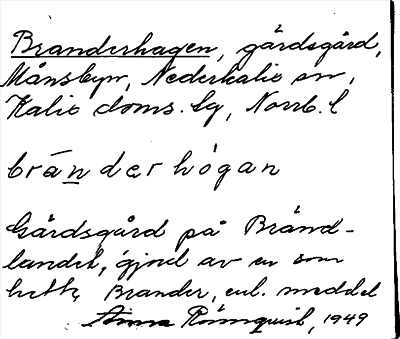 Branderhagen, gårdsgård,
Månsbyn, Nederkalix sn,
Kalix doms. lg, Norrb. l
bränderhògan
Gårdsgård på Bränd-
landet, gjord av en som
hette Brander, enl. meddel
Anna Rönnquist, 1949